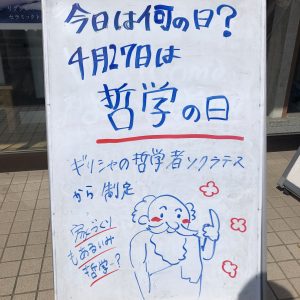 今日は何の日?
4月27日は
哲学の日
ギリシャの哲学者ソクラテス
から制定
家づくり
もあるいみ
哲学…?